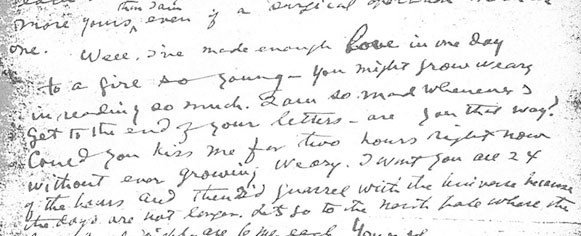 than I am
more yours, even if a surgical operation
one. Well, I've made enough love in one day
to a girl so young – you might grow weary
in reading so much. I am so mad whenever I
get to the end of your letters – are you that way?
Could you kiss me for two hours right now
without ever growing weary. I want you all 24
of the hours and then I'd quarrel with the universe because
the days are not longer. Let's go to the north pole where the
are 6 mo. each Yours